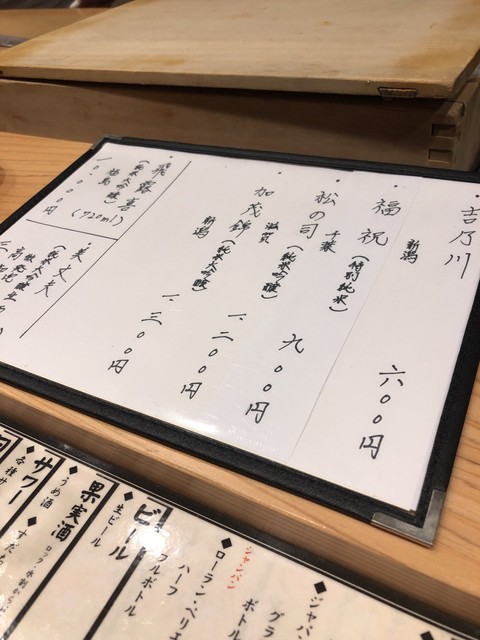 吉乃川
新潟
六〇〇円
・福祝(特別純米)
千葉
九〇〇円
・松の司(純米大吟醸)
滋賀
一、二〇〇円
・加茂錦(純米大吟醸)
新潟
一、三〇〇円
・飛露喜
(純米大吟醸)
福島
(720ml)
・美丈夫
(純米大吟醸
高知
◆ジャパ
グラ
ボトル
シャンパン
◆ローラン・ペリエ
ハーフ
フルボトル
ビール
◆生ビール
果実酒
◆うめ酒
ロック・水割
サワー
◆各種サ
◆すだち